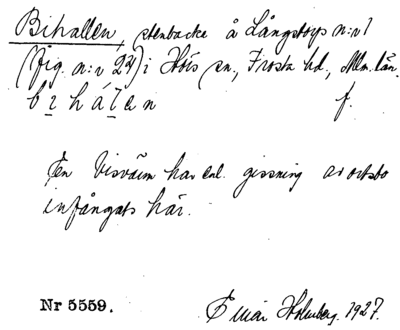 Bihallen, stenbacke å Långstorps n:r 1
(fig. n:r 24) i Höïs sn., Frosta hd., Mlm. län.
bɪhálen f.
En bisvärm har enl. gissning av ortsbo
infångats här.
Nr 5559. Einar Holmberg. 1927.